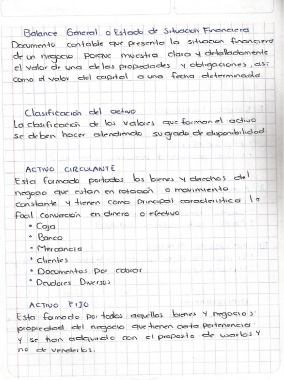 Balance General o Estado de Situacion Financiera
Documento contable que presenta la situacion financiera
de un negocio porque muestra clara y detalladamente
el valor de una de las propiedades y obligaciones, asi
como el valor del capital a una fecha determinada
Clasificación del activo
La clasificación de los valores que forman el activo
se deben hacer atendiendo su grado de disponibilidad
ACTIVO CIRCULANTE
Esta formado por todos los bienes y derechos del
negocio que estan en rotación o movimiento
constante y tienen como principal caracteristica la
facil conversion en dinero o efectivo
* Caja
* Banco
* Mercancia
* Clientes
* Documentos por cobrar
* Deudores Diversos
ACTIVO FIJO
Esta formado por todos aquellos bienes y negocios
propiedad del negocio que tienen cierta permanencia
y se han adquirido con el proposito de usarlos y
no de venderlos.